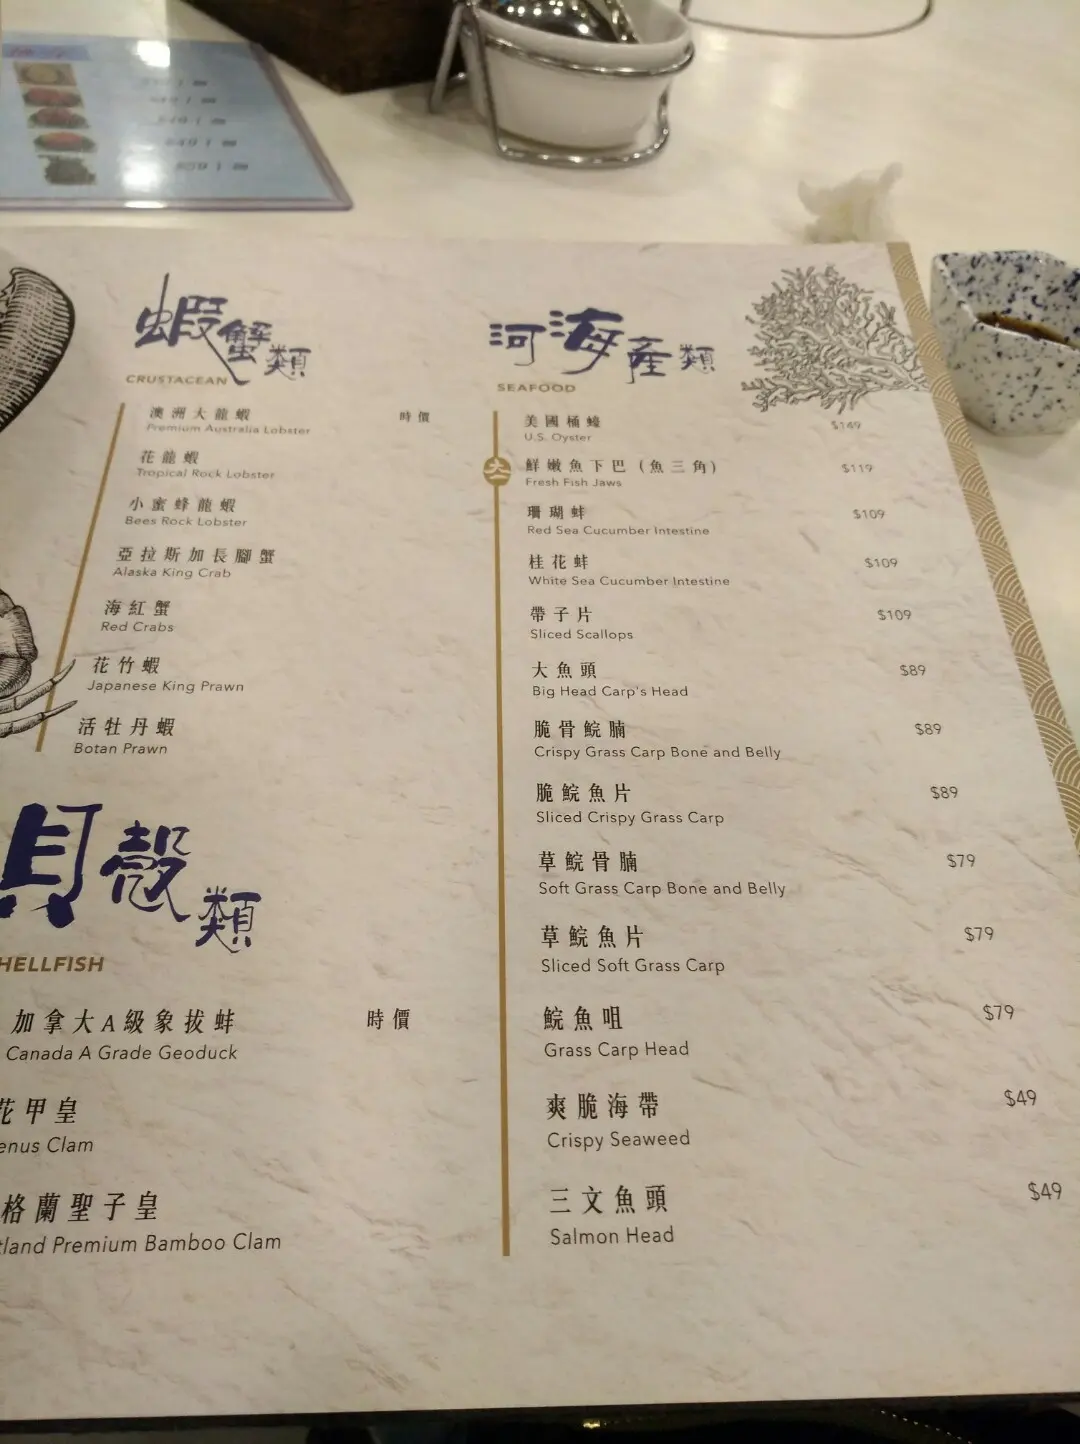 蝦蟹類
CRUSTACEAN
澳洲大龍蝦 時價
Premium Australia Lobster
花龍蝦
Tropical Rock Lobster
小蜜蜂龍蝦
Bees Rock Lobster
亞拉斯加長腳蟹
Alaska King Crab
海紅蟹
Red Crabs
花竹蝦
Japanese King Prawn
活牡丹蝦
Botan Prawn
貝殼類
HELLFISH
加拿大A級象拔蚌 時價
Canada A Grade Geoduck
花甲皇
enus Clam
格蘭聖子皇
tland Premium Bamboo Clam
河海產類
SEAFOOD
美國桶蠔 $149
U.S. Oyster
鮮嫩魚下巴(魚三角) $119
Fresh Fish Jaws
珊瑚蚌 $109
Red Sea Cucumber Intestine
桂花蚌 $109
White Sea Cucumber Intestine
帶子片 $109
Sliced Scallops
大魚頭 $89
Big Head Carp's Head
脆骨鯇腩 $89
Crispy Grass Carp Bone and Belly
脆鯇魚片 $89
Sliced Crispy Grass Carp
草鯇骨腩 $79
Soft Grass Carp Bone and Belly
草鯇魚片 $79
Sliced Soft Grass Carp
鯇魚咀 $79
Grass Carp Head
爽脆海帶 $49
Crispy Seaweed
三文魚頭 $49
Salmon Head